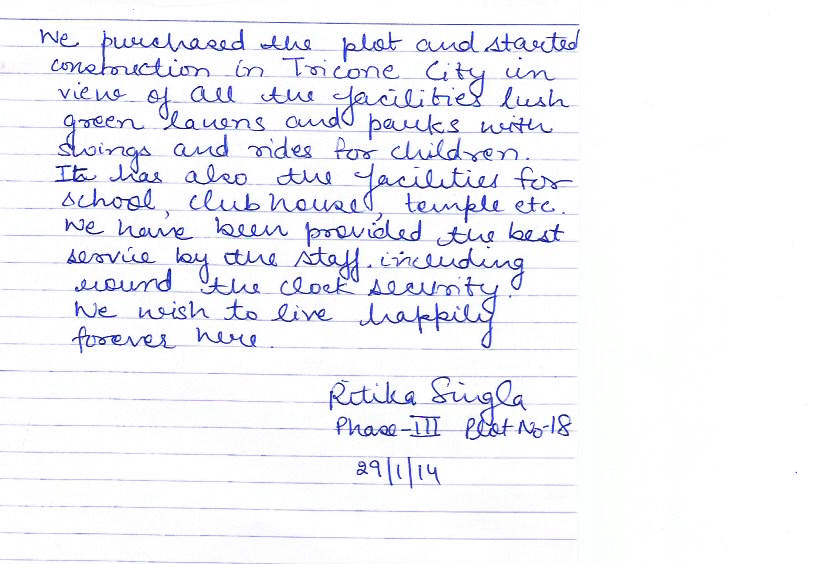 We purchased the plot and started
construction in Tricone City in
view of all the facilities lush
green lawns and parks with
swings and rides for children.
It has also the facilities for
school, club house, temple etc.
We have been provided the best
service by the staff. including
round the clock security.
We wish to live happily
forever here.
Ritika Singla
Phase-III Plot No-18
29/1/14